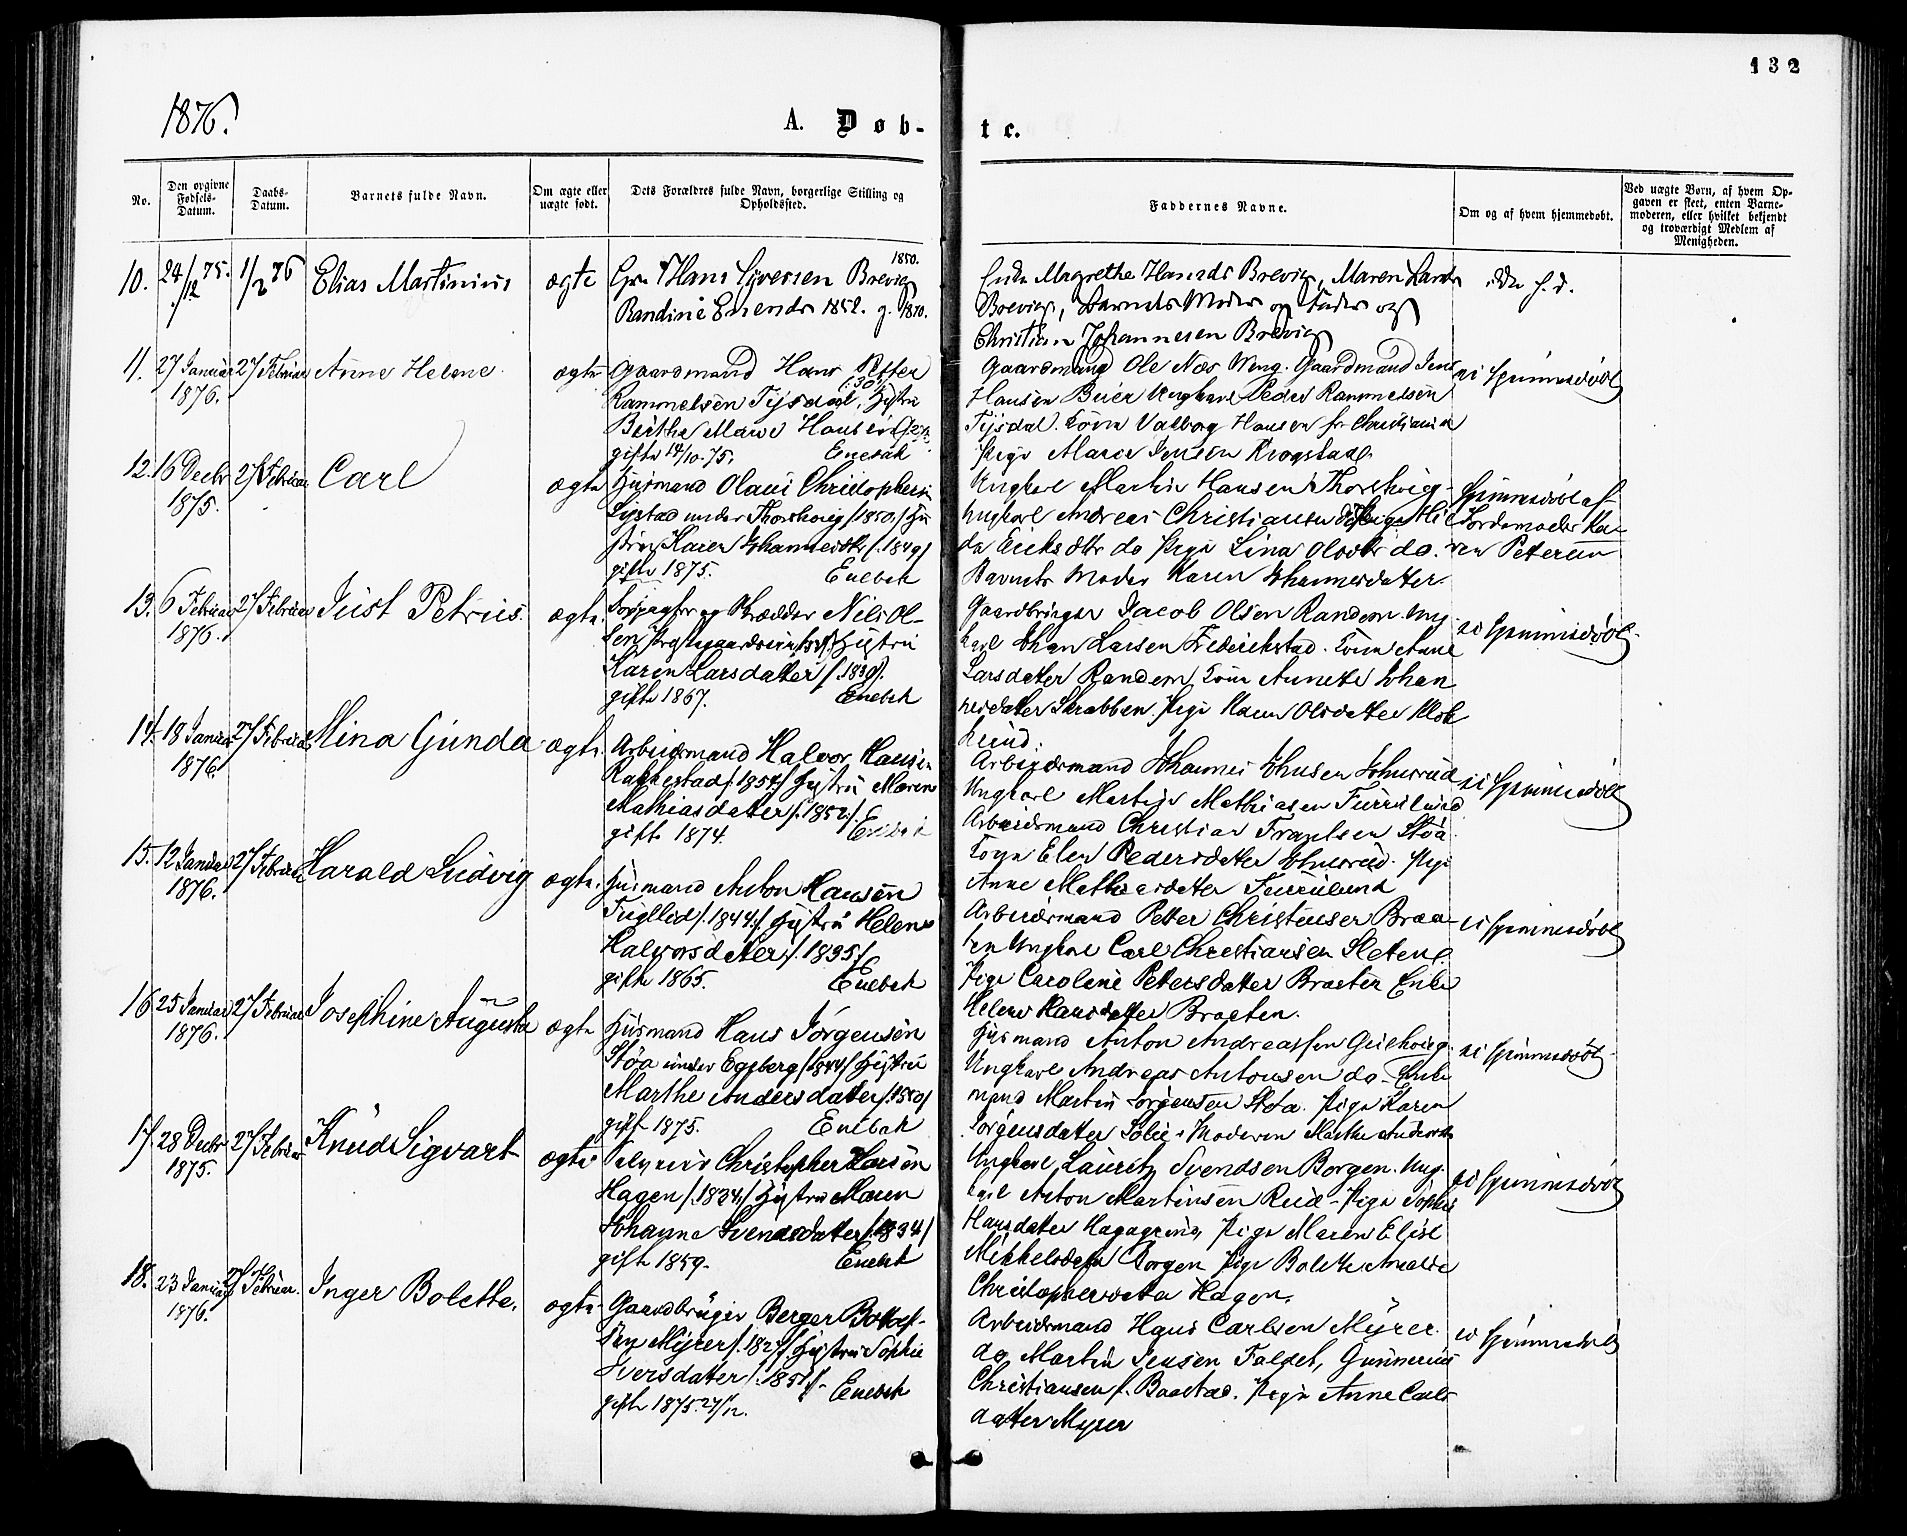 132
1876.
A. Døb-
te.
No.
Den opgivne Fødsels-Datum.
Daabs-Datum.
Barnets fulde Navn.
Om ægte eller uægte født.
Dets Forældres fulde Navn, borgerlige Stilling og Opholdssted.
Faddernes Navne.
Om og af hvem hjemmedøbt.
Ved uægte Børn, af hvem Opgaven er skeet, enten Barnemoderen, eller hvilket bekjendt og troværdigt Medlem af Menigheden.
10. 24/12 75. 1/2 76 Elias Martinius ægte
Hans Syversen Brevig 1850.
Randine Evensdr 1852. g. 1870.
Magrethe Hansdr Brevig, Maren Larsdr
Brevig, Barnets Moder og Fader og
Christian Johannesen Brevig
ikke h. d.
11. 27 Januar 1876. 27 Februar Anne Helene ægte
Gaardmand Hans Petter
Rammelsen Tysdal, Hustru
Berthe Marie
gifte 14/10 75. Enebak
Gaardmand Ole Næs Weng. Gaardmand Jens
Hansen Beier Ungkarl Peder Rammelsen
Tysdal. Kone Valborg Hansen fr Christiania
Pige Maren Jensen Krogstad
ei hjemmedøbt
12. 16 Decbr 1875. 27 Februar Carl ægte
Husmand Olaus Christophersen
Lystad under Thorshvig /1850/ Hu
stru Karen Johannesdtr /:1849/
gifte 1875. Enebak
Ungkarl Martin Hansen Thorshvig
Ungkarl Andreas Christiansen Pige Hil
da Eriksdtr do Pige Lina Olsdtr do.
Barnets Moder Karen Johannesdatter
hjemmedøbt af
Jordemoder Ka-
ren Petersen
13. 6 Februar 1876. 27 Februar Just Petrus. ægte
og Skrædder Nils Ol-
sen Hustru
Karen Larsdatter /:1839/.
gifte 1867. Enebak
Gaardbruger Jacob Olsen Randem. Ung
karl Johan Larsen Frederikstad. Kone Anne
Larsdatter Randem, Kone Annette Johan
nesdatter Skrabben Pige Karen Olsdatter
ei hjemmedøbt
14. 18 Januar 1876. 27 Februar Mina Gunda ægte
Arbeidsmand Halvor Hansen
Rakkestad /:1854:/ Hustru Maren
Mathiasdatter /:1852:/.
gifte 1874. Enebak
Arbeidsmand Johannes Johnsen Johnsrud
Ungkarl Martin Mathiasen Furulund
Arbeidsmand Christian Støa
Kone Elen Pedersdatter Johnsrud. Pige
Anne Mathiasdatter Furulund
ei hjemmedøbt
15. 12 Januar 1876. 27 Februar Harald Ludvig ægte.
Husmand Anton Hansen
Fugllid /:1844:/ Hustru Helene
Halvorsdatter /:1835/
gifte 1865. Enebak
Arbeidsmand Petter Christensen Braa-
ten Ungkarl Carl Christiansen Sleten
Pige Caroline Petersdatter Braaten Enke
Helene Hansdatter Braaten.
ei hjemmedøbt
16 25 Januar 1876. 27 Februar Josephine Augusta ægte
Husmand Hans Jörgensen
Støa under Egeberg /1844/ Hustru
Marthe Andersdatter /:1850/
gift 1875. Enebak
Husmand Anton Andreassen
Ungkarl Andreas Antonsen do. Enke
mand Martin Jörgensen Støa. Pige Karen
Jörgensdatter Moderen Marthe Andersdtr
ei hjemmedøbt
17. 28 Decbr 1875. 27 Februar Knud Sigvart ægte
Selveier Christopher Larsen
Hagen /:1834:/ Hustru Maren
Johanne Svendsdatter /:1834/
gifte 1859. Enebak
Ungkarl Lauritz Svendsen Borgen. Ung-
karl Anton Martinsen Rud - Pige Sophie
Hansdatter Pige Maren Elise
Mikkelsdatter Borgen Pige Bolette Amalie
Christophersdatter Hagen.
ei hjemmedøbt
18. 23 Januar 1876. 27 Februar. Inger Bolette. ægte
Gaardbruger Berger
sen Myrer /:182 / Hustru Sophie
Iversdatter /:1851/-
gifte 1875 27/12. Enebak
Arbeidsmand Hans Carlsen Myrer.
do Martin Jensen Faldet, Gunnerius
Christiansen Baastad. Pige Anne Carls
datter Myrer
ei hjemmedøbt